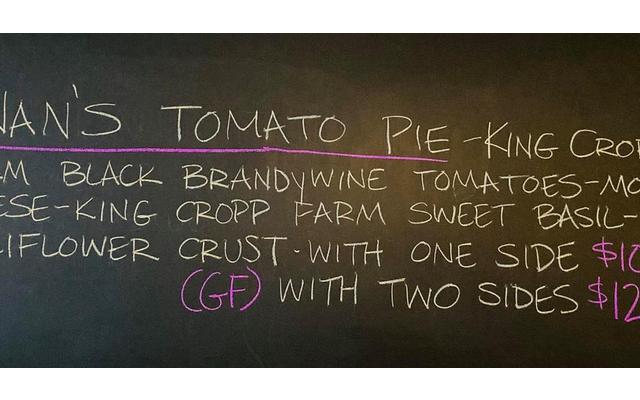 NAN'S TOMATO PIE - KING CROP
M BLACK BRANDYWINE TOMATOES - MO
ESE - KING CROPP FARM SWEET BASIL -
IFLOWER CRUST - WITH ONE SIDE $10
(GF) WITH TWO SIDES $12